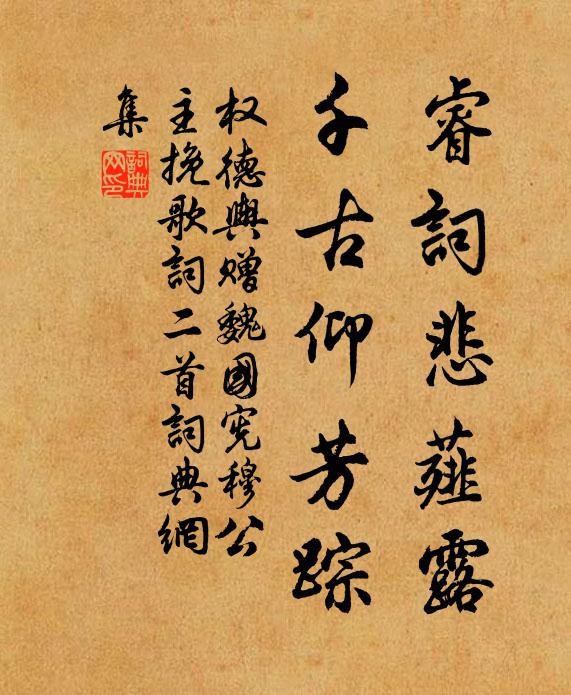 睿詞悲薤露
千古仰芳踪
权德輿赠魏國宪穆公
主挽歌詞二首詞典網
集
詞典網印